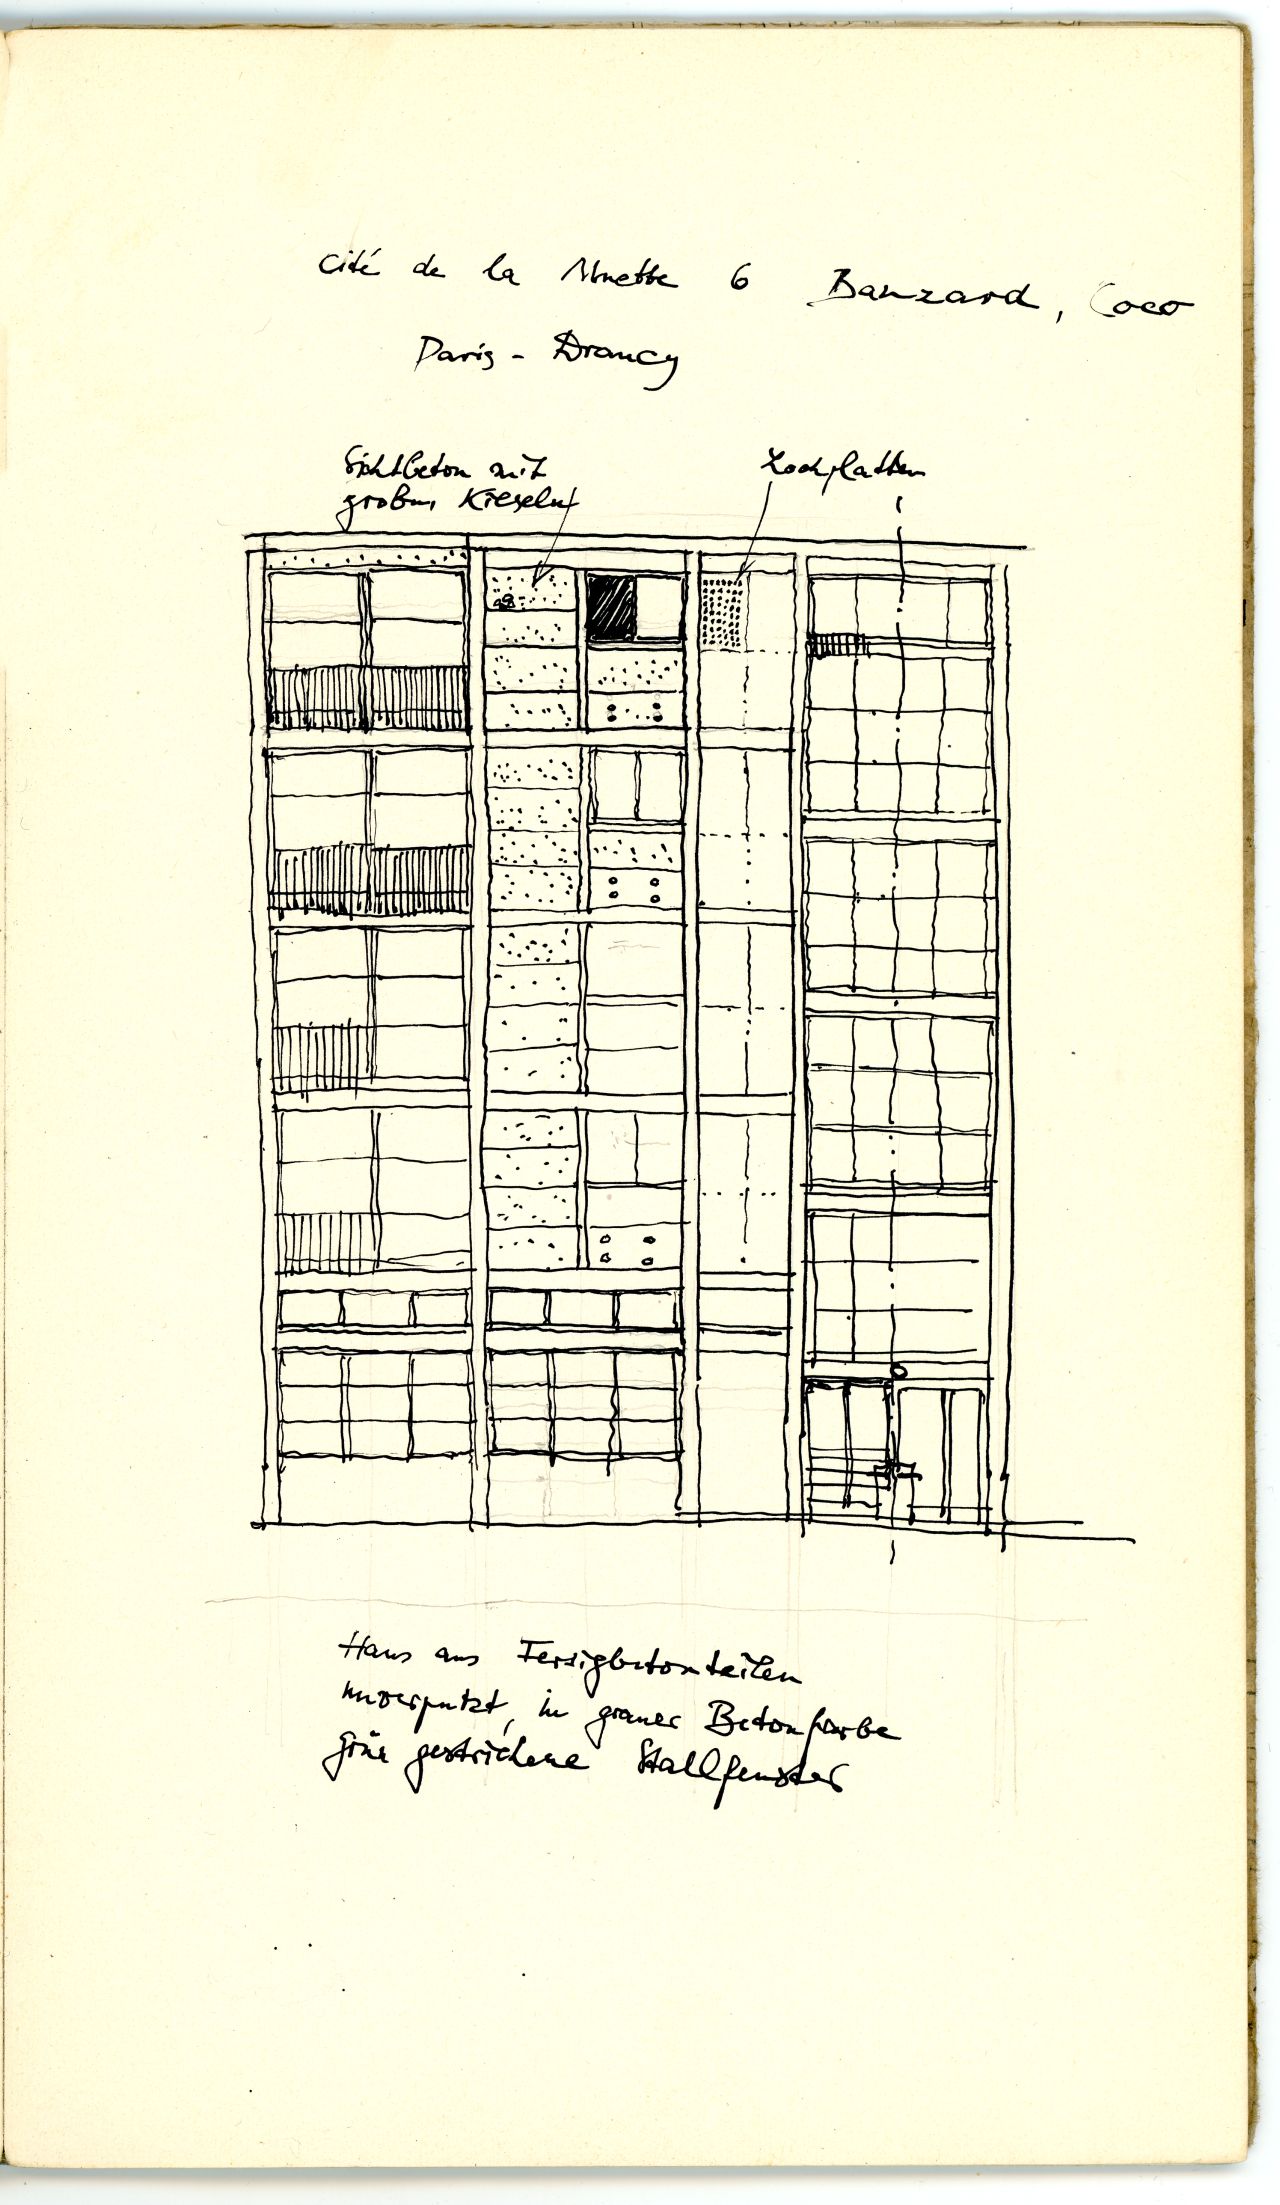 Cité de la Muette 6 Banzard, Coco
Paris - Drancy
Sichtbeton mit
groben Kieseln
Lochplatten
Haus aus Fertigbetonteilen
unverputzt, in grauer Betonfarbe
Grün gestrichene Stallfenster